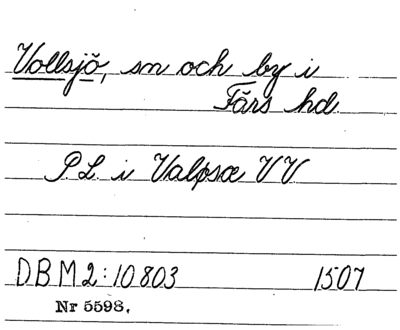 Vollsjö, sn och by i
Färs hd.
P.L. i Valpsæ VV
DBM2:10803 1507
Nr 5598.